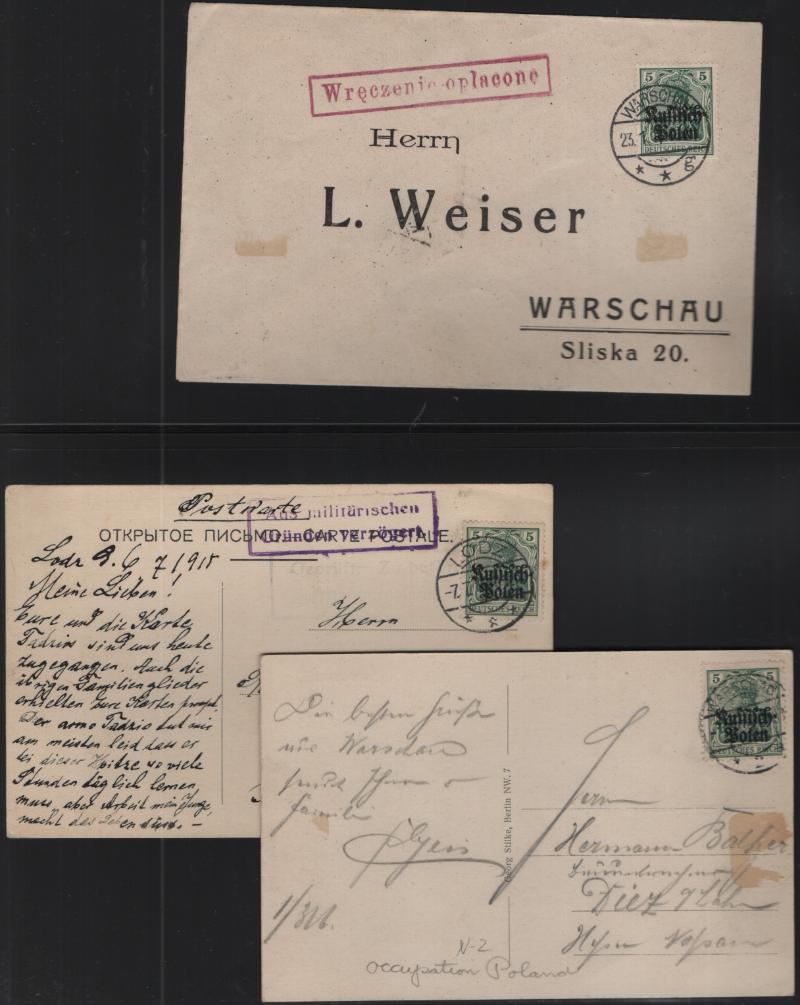 Wręczenie opłacone
5 5
Russisch-
Polen
DEUTSCHES REICH
WARSCHAU
23.1
* * g
Herrn
L. Weiser
WARSCHAU
Sliska 20.
Postkarte
Aus militärischen
Gründen verzögert.
ОТКРЫТОЕ ПИСЬМО. CARTE POSTALE.
5 5
Russisch-
Polen
DEUTSCHES REICH
LODZ
-7.
Lodz 6/7 1918
Meine Lieben!
Eure und die Karte
Tadzios sind uns heute
zugegangen. Auch die
übrigen Familienglieder
erhielten eure Karten prompt.
Der arme Tadzio tut mir
am meisten leid dass er
bei dieser Hitze so viele
Stunden täglich lernen
muss, aber Arbeit mein Junge,
macht das Leben süss.–
Herrn
5 5
Russisch-
Polen
DEUTSCHES REICH
Die besten Grüße
aus Warschau
sendet Ihnen
Familie
Georg Stilke, Berlin NW. 7
Herrn
Hermann
Diez a/Lahn
Hessen Nassau
N-2
occupation Poland